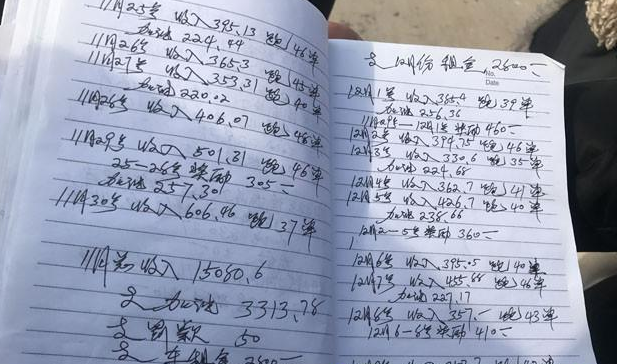 11月25号 收入 395.13 跑 46单
加油 224.44
11月26号 收入 365.3 跑 45单
11月27号 收入 353.31 跑 40单
加油 220.02
11月28号 收入 406.07 跑 46单
11月29号 收入 501.21 跑 46单
25-28号 奖励 305-
加油 257.30
11月30号 收入 606.46 跑 37单
11月总收入 15080.6
支 加油 3313.78
支 罚款 50
支 车租金 2800-
支 12月份 租金 2800-
No.
Date
12月1号 收入 385.4 跑 39单
加油 256.36
11月29号-12月1号 奖励 460-
12月2号 收入 394.75 跑 46单
12月3号 收入 330.6 跑 35单
加油 224.68
12月4号 收入 362.7 跑 41单
12月5号 收入 426.7 跑 40单
加油 238.66
12月2-5号 奖励 360-
12月6号 收入 395.05 跑 40单
12月7号 收入 455.88 跑 46单
加油 227.17
12月8号 收入 357- 跑 43单
12月6-8号 奖励 410-